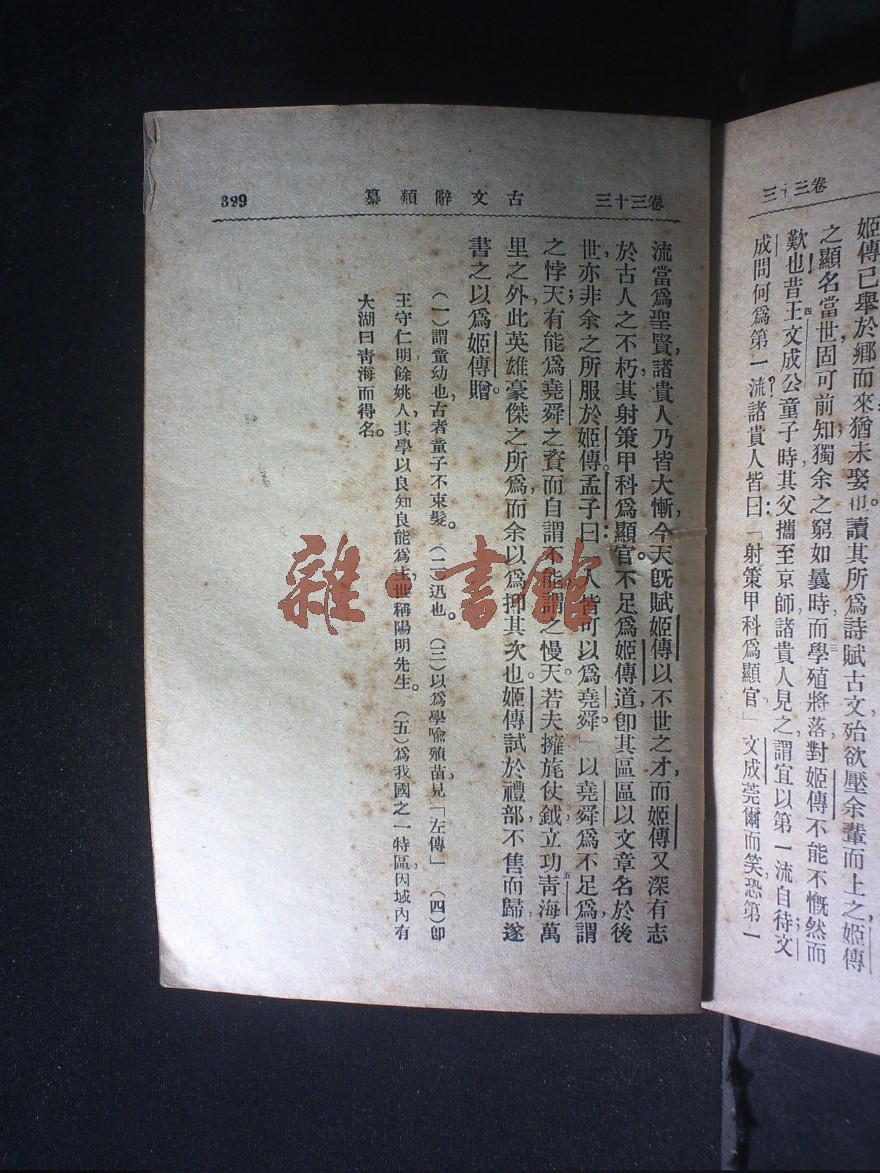 卷三十三
姬傳已舉於鄉而來猶未娶也讀其所爲詩賦古文殆欲壓余輩而上之姬傳
之顯名當世固可前知獨余之窮如曩時而學殖將落對姬傳不能不慨然而
歎也昔王文成公童子時其父攜至京師諸貴人見之謂宜以第一流自待文
成問何爲第一流諸貴人皆曰：「射策甲科爲顯官」文成莞爾而笑，恐第一
卷三十三
古文辭類纂
329
流當爲聖賢，諸貴人乃皆大慚，今天旣賦姬傳以不世之才，而姬傳又深有志
於古人之不朽，其射策甲科爲顯官。不足爲姬傳道，卽其區區以文章名於後
世，亦非余之所服於姬傳。孟子曰：「人皆可以爲堯舜。」以堯舜爲不足爲，謂
之悖；天有能爲堯舜之資而自謂不能，謂之慢天。若夫擁旄仗鉞，立功青海五萬
里之外，此英雄豪傑之所爲，而余以爲抑其次也。姬傳試於禮部，不售而歸，遂
書之以爲姬傳贈。
（一）謂童幼也，古者童子不束髮。（二）迅也。（三）以爲學喩殖苗，見「左傳」（四）卽
王守仁，明餘姚人，其學以良知良能爲主，世稱陽明先生。（五）爲我國之一特區，因域內有
大湖曰青海而得名。
雜·書館